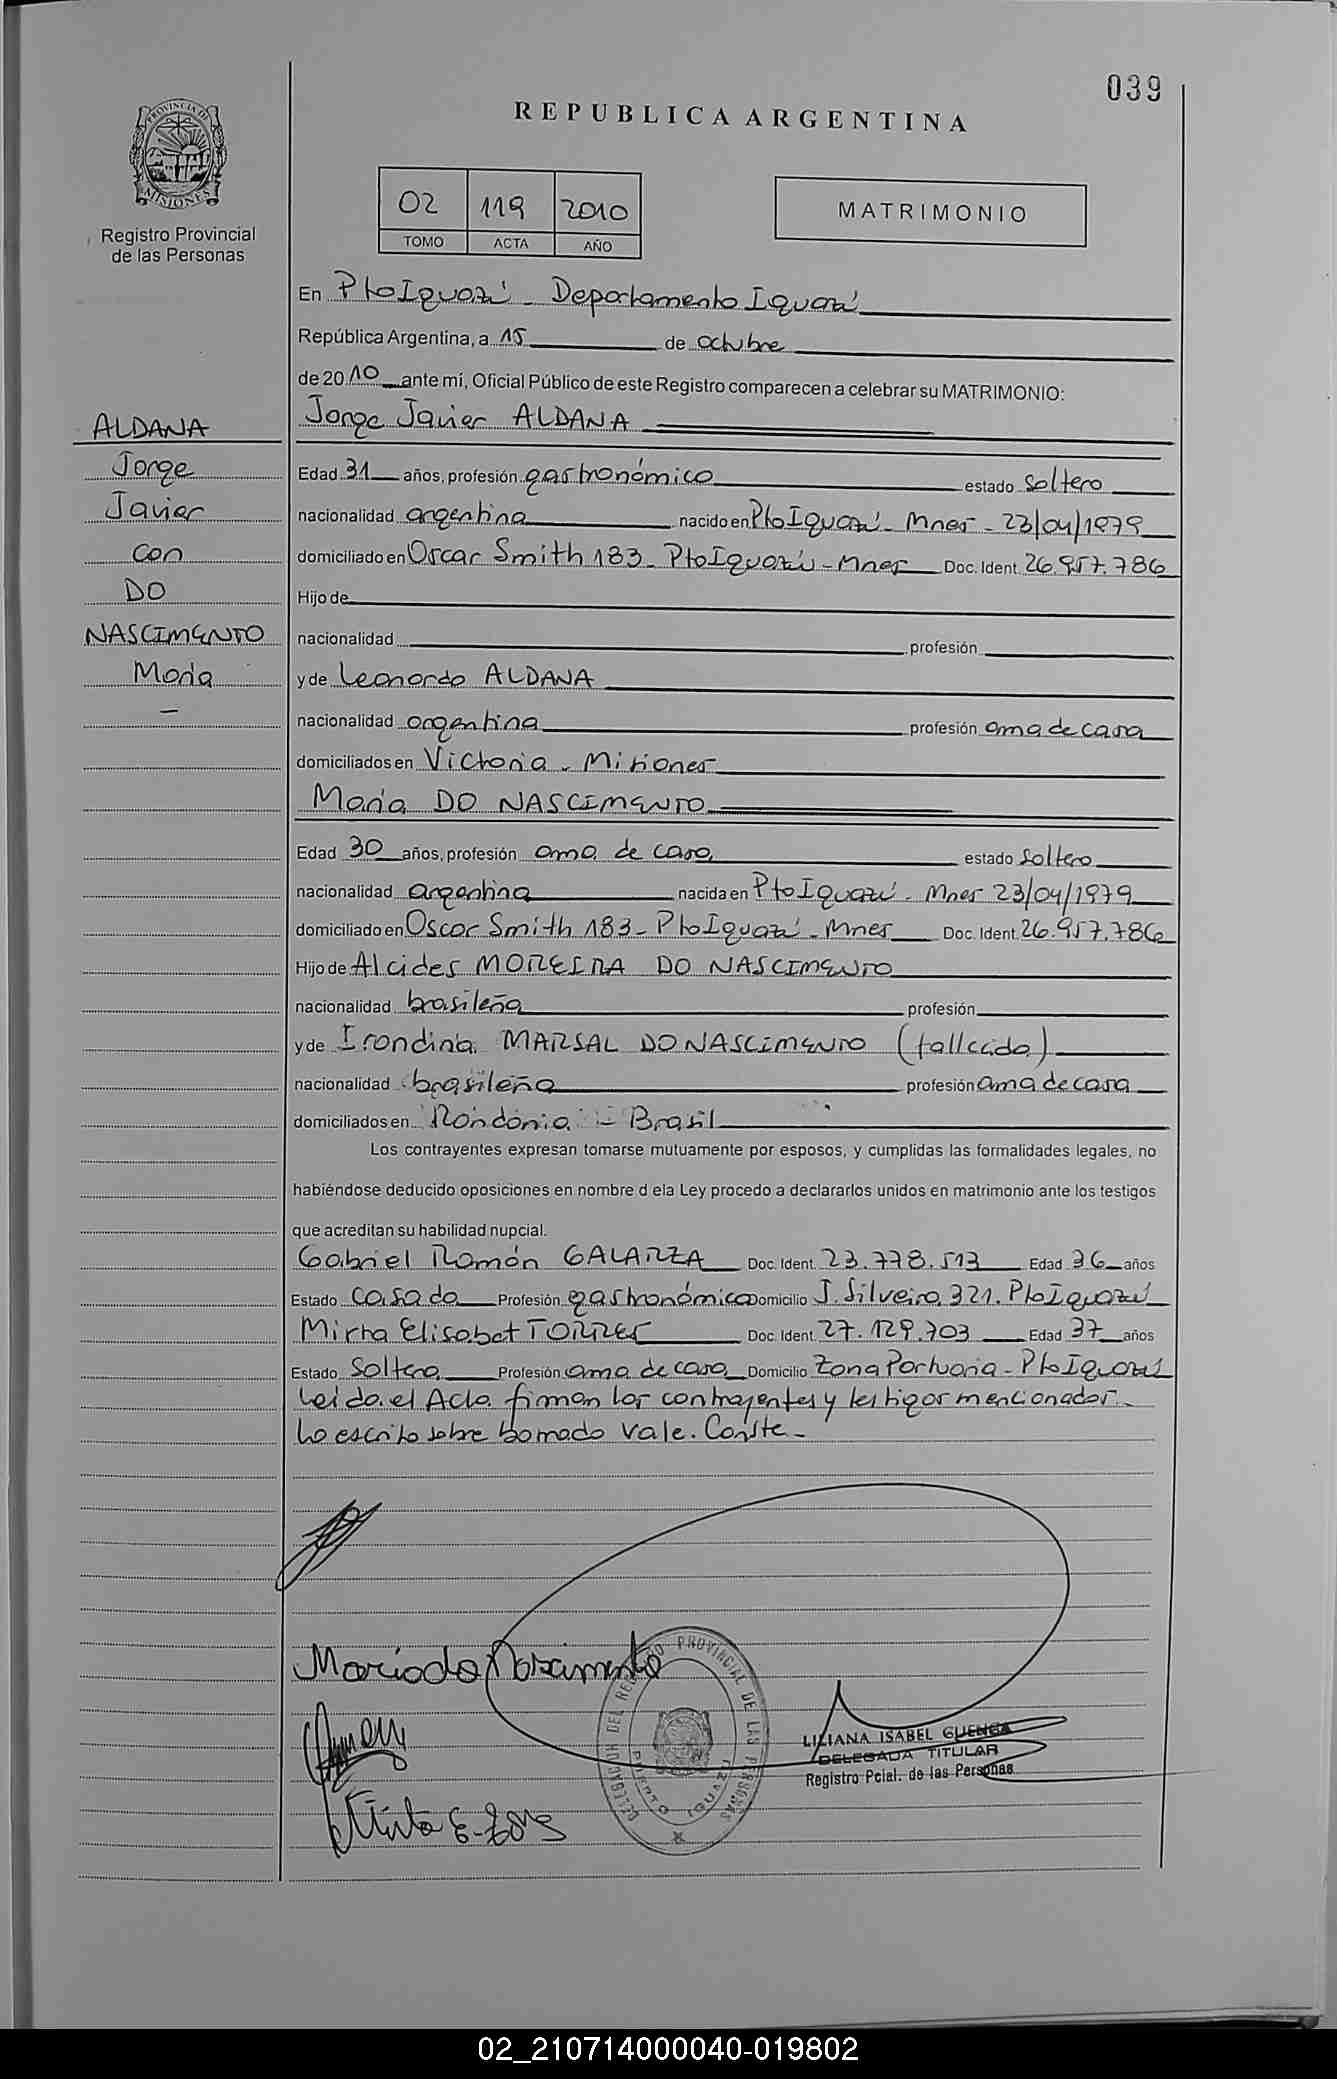 039
REPUBLICA ARGENTINA
PROVINCIA DE MISIONES
Registro Provincial
de las Personas
02 119 2010
TOMO ACTA AÑO
MATRIMONIO
En Pto Iguazú - Departamento Iguazú
República Argentina, a 15 de octubre
de 2010 ante mí, Oficial Público de este Registro comparecen a celebrar su MATRIMONIO:
ALDANA
Jorge
Javier
con
DO
NASCIMENTO
María
-
Jorge Javier ALDANA
Edad 31 años, profesión gastronómico estado soltero
nacionalidad argentina nacido en Pto Iguazú - Mnes - 23/04/1979
domiciliado en Oscar Smith 183 - Pto Iguazú - Mnes Doc. Ident. 26.957.786
Hijo de
nacionalidad profesión
y de Leonarda ALDANA
nacionalidad argentina profesión ama de casa
domiciliados en Victoria - Misiones
María DO NASCIMENTO
Edad 30 años, profesión ama de casa estado soltera
nacionalidad argentina nacida en Pto Iguazú - Mnes 23/04/1979
domiciliado en Oscar Smith 183 - Pto Iguazú - Mnes Doc. Ident. 26.957.786
Hijo de Alcides MOREIRA DO NASCIMENTO
nacionalidad brasileña profesión
y de Irondina MARSAL DO NASCIMENTO (fallecida)
nacionalidad brasileña profesión ama de casa
domiciliados en Rondonia - Brasil
Los contrayentes expresan tomarse mutuamente por esposos, y cumplidas las formalidades legales, no
habiéndose deducido oposiciones en nombre d ela Ley procedo a declararlos unidos en matrimonio ante los testigos
que acreditan su habilidad nupcial.
Gabriel Ramón GALARZA Doc. Ident. 23.778.513 Edad 36 años
Estado casado Profesión gastronómico Domicilio J. Silveira 321. Pto Iguazú
Mirta Elisabet TORRES Doc. Ident. 27.129.703 Edad 37 años
Estado soltera Profesión ama de casa Domicilio Zona Portuaria - Pto Iguazú
Leida el Acta firman los contrayentes y testigos mencionados.-
Lo escrito sobre borrado vale. Conste -
Maria do Nascimento
Mirta E. Torres
DELEGACION DEL REGISTRO PROVINCIAL DE LAS PERSONAS
PUERTO IGUAZU
LILIANA ISABEL CUENCA
DELEGADA TITULAR
Registro Pcial. de las Personas
02_210714000040-019802